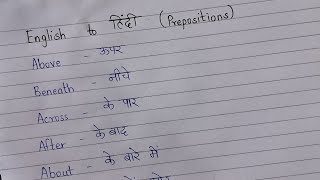 English to हिंदी (Prepositions)
Above - ऊपर
Beneath - नीचे
Across - के पार
After - के बाद
About - के बारे में